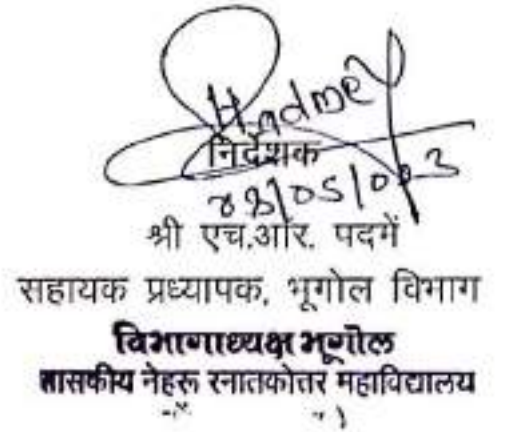 निर्देशक
श्री एच.आर. पदमें
सहायक प्रध्यापक, भूगोल विभाग
विभागाध्यक्ष भूगोल
शासकीय नेहरू स्नातकोत्तर महाविद्यालय